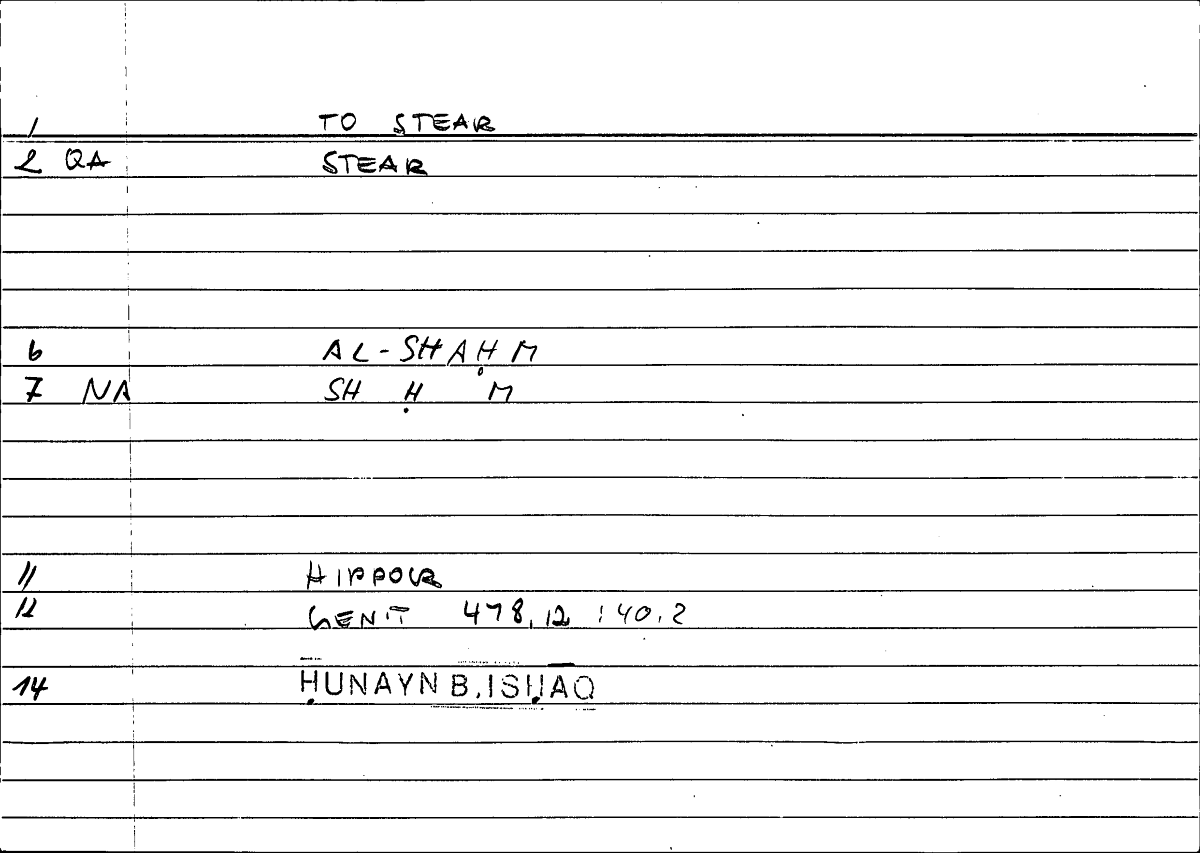 1 TO STEAR
2 QA STEAR
6 AL-SHAḤM
7 NA SH Ḥ M
11 HIPPOCR
12 GENIT 478,12 : 40.2
14 ḤUNAYN B. ISḤĀQ